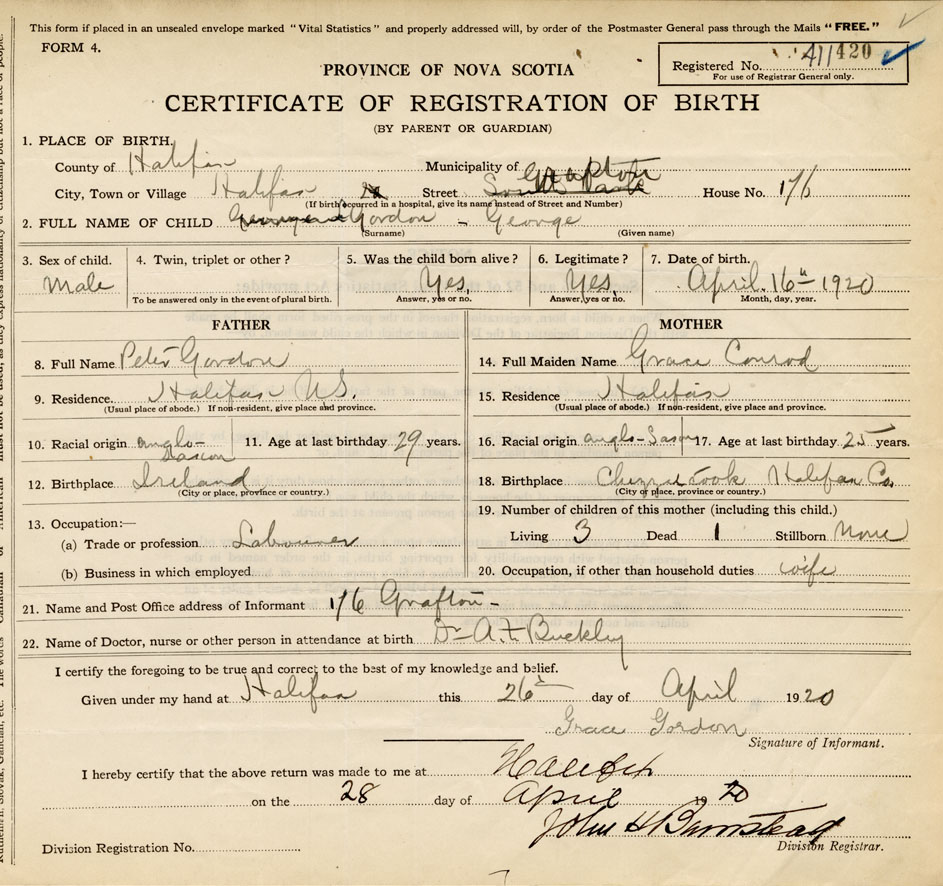 This form if placed in an unsealed envelope marked "Vital Statistics" and properly addressed will, by order of the Postmaster General pass through the Mails "FREE."
FORM 4.
Registered No. 411420
For use of Registrar General only.
PROVINCE OF NOVA SCOTIA
CERTIFICATE OF REGISTRATION OF BIRTH
(BY PARENT OR GUARDIAN)
1. PLACE OF BIRTH,
County of Halifax Municipality of
City, Town or Village Halifax Street Grafton House No. 1/6
(If birth occurred in a hospital, give its name instead of Street and Number)
2. FULL NAME OF CHILD Gordon - George
(Surname) (Given name)
3. Sex of child. 4. Twin, triplet or other? 5. Was the child born alive? 6. Legitimate? 7. Date of birth.
Male Yes, Yes, April. 16th 1920
To be answered only in the event of plural birth. Answer, yes or no. Answer, yes or no. Month, day, year.
FATHER
8. Full Name Peter Gordon
9. Residence. Halifax N.S.
(Usual place of abode.) If non-resident, give place and province.
10. Racial origin anglo-Saxon 11. Age at last birthday 29 years.
12. Birthplace Ireland
(City or place, province or country.)
13. Occupation:—
(a) Trade or profession. Labourer
(b) Business in which employed.
MOTHER
14. Full Maiden Name Grace Conrod
15. Residence Halifax
(Usual place of abode.) If non-resident, give place and province.
16. Racial origin anglo-Saxon 17. Age at last birthday 25 years.
18. Birthplace Chezzetcook Halifax Co.
(City or place, province or country.)
19. Number of children of this mother (including this child.)
Living 3 Dead 1 Stillborn None
20. Occupation, if other than household duties wife
21. Name and Post Office address of Informant 1/6 Grafton-
22. Name of Doctor, nurse or other person in attendance at birth Dr A. F. Buckley
I certify the foregoing to be true and correct to the best of my knowledge and belief.
Given under my hand at Halifax this 26th day of April 1920
Grace Gordon
Signature of Informant.
I hereby certify that the above return was made to me at Halifax
on the 28 day of April 1920
John H Barnstead
Division Registrar.
Division Registration No.